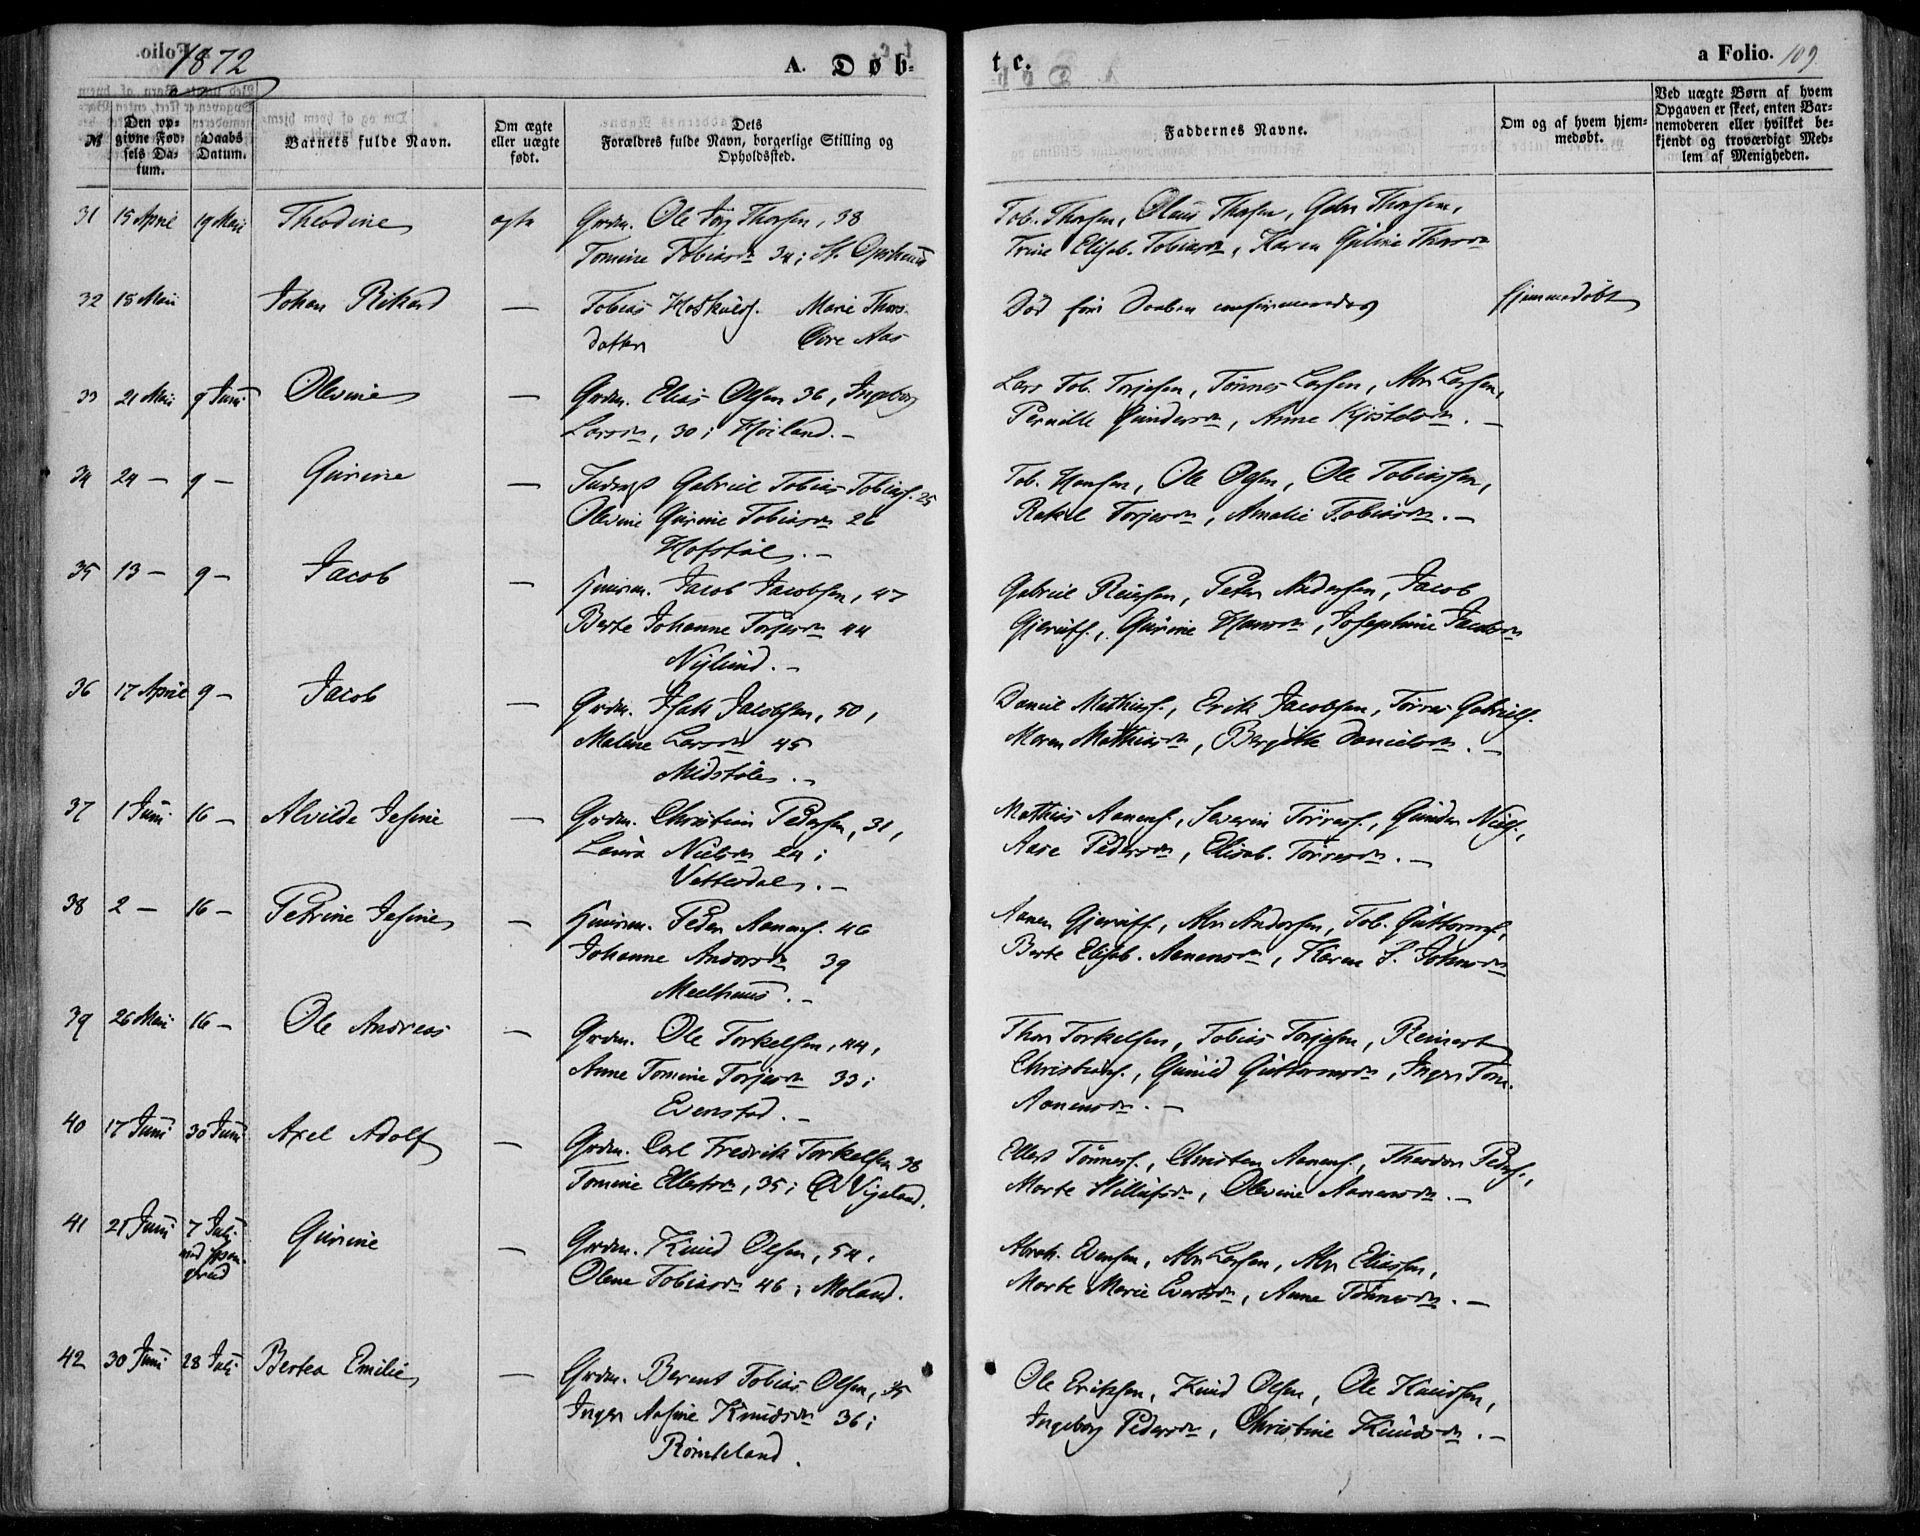 1872
A. Døb-
te.
a Folio. 109.
№
Den op-
givne Fød-
sels Da-
tum.
Daabs
Datum.
Barnets fulde Navn.
Om ægte
eller uægte
født.
Dets
Forældres fulde Navn, borgerlige Stilling og
Opholdssted.
Faddernes Navne.
Om og af hvem hjem-
medøbt.
Ved uægte Børn af hvem
Opgaven er skeet, enten Bar-
nemoderen eller hvilket be-
kjendt og troværdigt Med-
lem af Menigheden.
31 15 April 19 Mai Theodine ægte Grdm. Ole Thorsen, 38
Tomine Tobiasd. 34;
Tob. Thorsen, Olaus Thorsen, Gabr. Thorsen,
Trine Elisab. Tobiasd., Karen Gurine Thorsd.
32 18 Mai Johan Rikard — Tobias Marie Thors-
datter Øvre Aas
Død før Daaben hjemmedøbt
33 21 Mai 9 Juni Olevine — Grdm. Elias Olsen 36, Ingeborg
Larsd., 30; Høiland. —
Lars Tob. Torjesen, Tönnes Larsen, Abr. Larsen,
Pernille Gundersd., Anne Kjøstelsd. —
34 24 — 9 — Gurine — Gabriel Tobias Tobias. 25
Olevine Gurine Tobiasd. 26
Hofstøl. —
Tob. Hansen, Ole Olsen, Ole Tobiassen,
Rakel Torjesd., Amalie Tobiasd. —
35 13 — 9 — Jacob — Huusm. Jacob Jacobsen, 47
Berte Johanne Torjesd. 44
Nylund. —
Gabriel Reiersen, Peter Andersen, Jacob
Gjerulfs., Gurine Hansd., Josephine Jacobsd.
36 17 April 9 — Jacob — Grdm. Isak Jacobsen, 50,
Malene Larsd. 45
Midstøl. —
Daniel Mathias., Erik Jacobsen, Tørres Gabriels.
Maren Mathiasd., Bergitte Danielsd. —
37 1 Juni 16 — Alvilde Jesine — Grdm. Christian Pedersen, 31,
Laura Nielsd. 24;
Vatterdal. —
Mathias Aanens., Severin Tørres., Gunder Niels.,
Aase Pedersd., Elisab. Tørresd. —
38 2 — 16 — Petrine Jesine — Huusm. Peder Aanens. 46
Johanne Andersd. 39
Meelhuus. —
Aanen Gjerulfs., Abr. Andersen, Tob. Guttorms.,
Berte Elisab. Aanensd., Karen S. Johnsd.
39 26 Mai 16 — Ole Andreas — Grdm. Ole Torkelsen, 44,
Anne Tomine Torjesd. 33;
Evenstad. —
Thor Torkelsen, Tobias Torjesen, Reinert
Christians., Gunild Guttormsd., Inger Tom.
Aanensd. —
40 17 Juni 30 Juni Axel Adolf — Grdm. Carl Fredrik Torkelsen 38
Tomine Ellertsd., 35; Ø Vigeland.
Ellert Tönnes., Christen Aanens., Theodor Peders.,
Marte Villufsd., Olevine Aanensd. —
41 21 Juni 7 Juli Gurine — Grdm. Knud Olsen, 54,
Olene Tobiasd. 46; Moland.
Abrah. Evensen, Abr. Larsen, Abr. Eliassen,
Marte Marie Evertsd., Anne Tönnesd. —
42 30 Juni 28 Juli Bertea Emilie — Grdm. Berent Tobias Olsen, 35
Inger Aasine Knudsd. 36;
Rømteland.
Ole Eriksen, Knud Olsen, Ole Knudsen,
Ingeborg Pedersd., Christine Knudsd. —